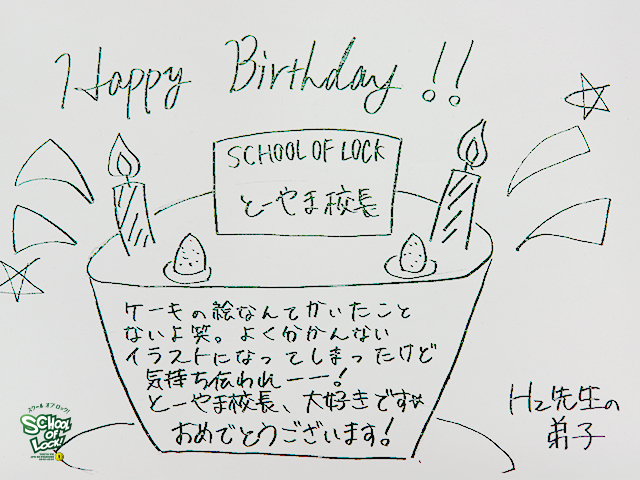 Happy Birthday!!
SCHOOL OF LOCK
とーやま校長
ケーキの絵なんてかいたこと
ないよ笑。よく分かんない
イラストになってしまったけど
気持ち伝われーー!
とーやま校長、大好きです☆
おめでとうございます!
Hz先生の
弟子
スクール オブ ロック!
SCHOOL
OF
LOCK!